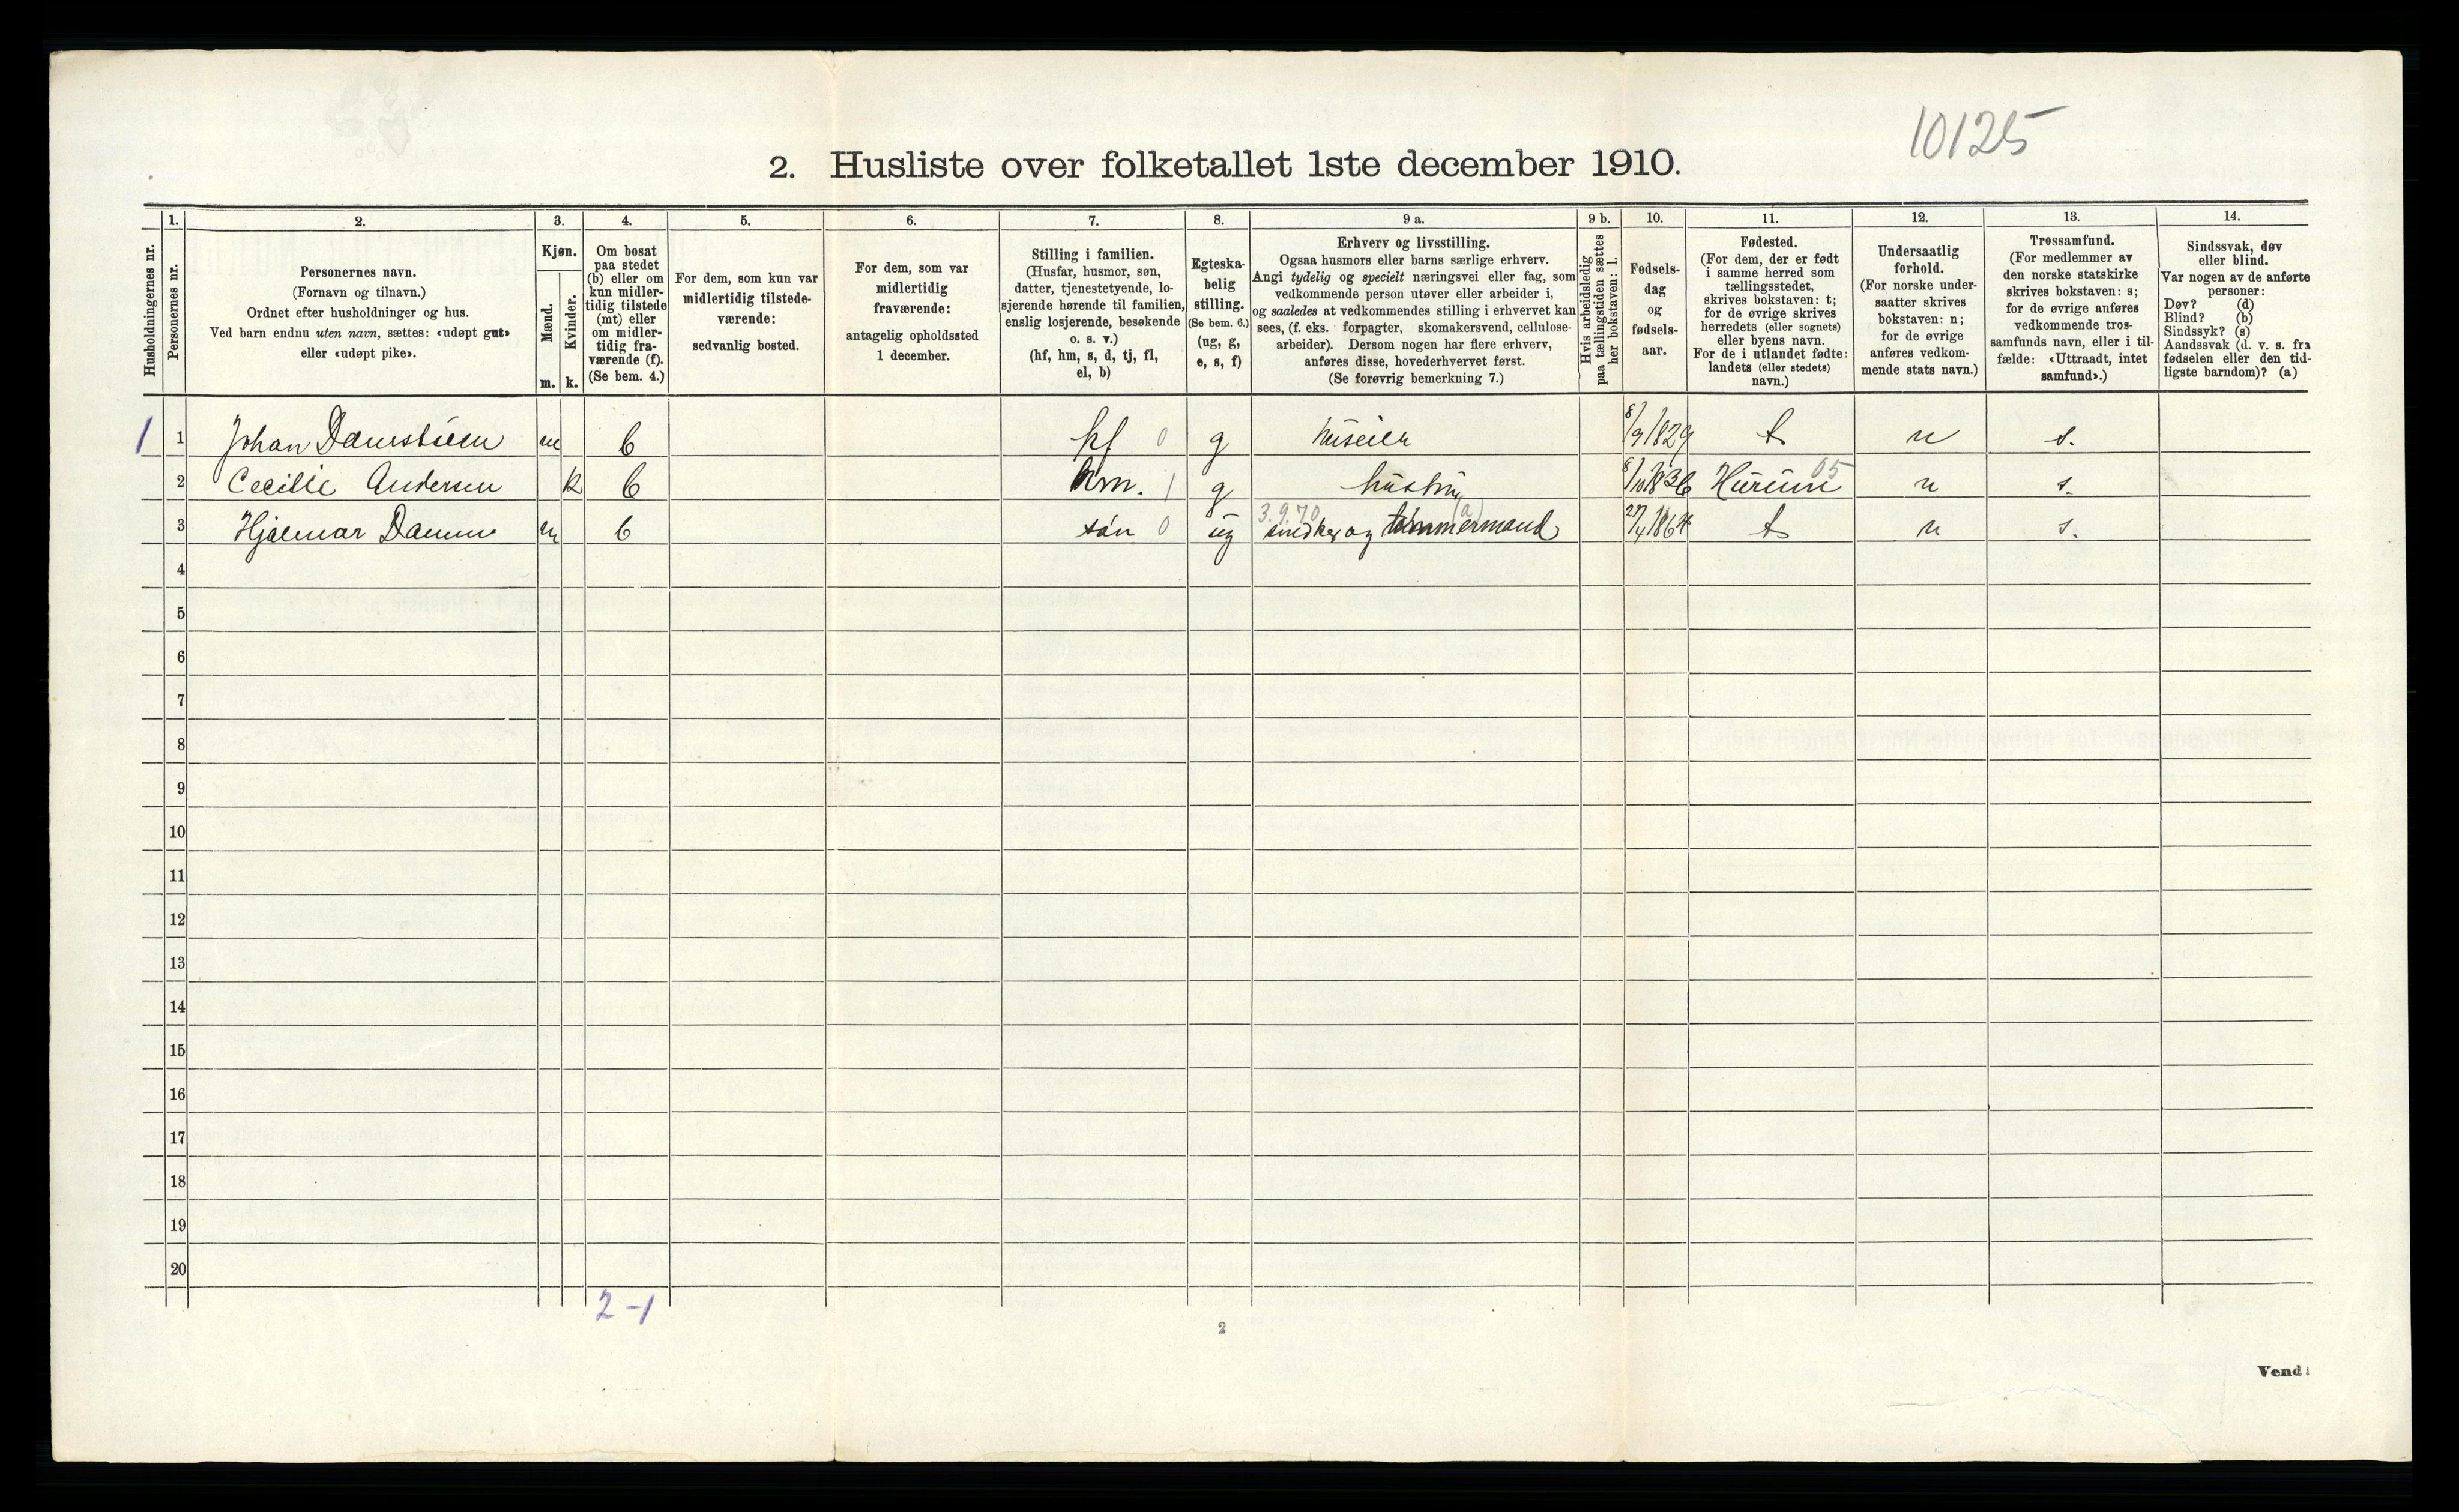 10125
2. Husliste over folketallet 1ste december 1910.
Husholdningernes nr.
1.
Personernes nr.
2.
Personernes navn.
(Fornavn og tilnavn.)
Ordnet efter husholdninger og hus.
Ved barn endnu uten navn, sættes: «udøpt gut»
eller «udøpt pike».
3.
Kjøn.
Mænd.
Kvinder.
m. k.
4.
Om bosat
paa stedet
(b) eller om
kun midler-
tidig tilstede
(mt) eller
om midler-
tidig fra-
værende (f).
(Se bem. 4.)
5.
For dem, som kun var
midlertidig tilstede-
værende:
sedvanlig bosted.
6.
For dem, som var
midlertidig
fraværende:
antagelig opholdssted
1 december.
7.
Stilling i familien.
(Husfar, husmor, søn,
datter, tjenestetyende, lo-
sjerende hørende til familien,
enslig losjerende, besøkende
o. s. v.)
(hf, hm, s, d, tj, fl,
el, b)
8.
Egteska-
belig
stilling.
(Se bem. 6.)
(ug, g,
e, s, f)
9 a.
Erhverv og livsstilling.
Ogsaa husmors eller barns særlige erhverv.
Angi tydelig og specielt næringsvei eller fag, som
vedkommende person utøver eller arbeider i,
og saaledes at vedkommendes stilling i erhvervet kan
sees, (f. eks. forpagter, skomakersvend, cellulose-
arbeider). Dersom nogen har flere erhverv,
anføres disse, hovederhvervet først.
(Se forøvrig bemerkning 7.)
9 b.
Hvis arbeidsledig
paa tællingstiden sættes
her bokstaven: l.
10.
Fødsels-
dag
og
fødsels-
aar.
11.
Fødested.
(For dem, der er født
i samme herred som
tællingsstedet,
skrives bokstaven: t;
for de øvrige skrives
herredets (eller sognets)
eller byens navn.
For de i utlandet fødte:
landets (eller stedets)
navn.)
12.
Undersaatlig
forhold.
(For norske under-
saatter skrives
bokstaven: n;
for de øvrige
anføres vedkom-
mende stats navn.)
13.
Trossamfund.
(For medlemmer av
den norske statskirke
skrives bokstaven: s;
for de øvrige anføres
vedkommende tros-
samfunds navn, eller i til-
fælde: «Uttraadt, intet
samfund».)
14.
Sindssvak, døv
eller blind.
Var nogen av de anførte
personer:
Døv? (d)
Blind? (b)
Sindssyk? (s)
Aandssvak (d. v. s. fra
fødselen eller den tid-
ligste barndom)? (a)
1 1 Johan m b hf 0 g huseier 8/9 1829 t n s.
2 Cecilie Andersen k b hm. 1 g hustru 8/10 1836 Hurum 05 n s.
3.9.70 (a)
3 Hjalmar Damm m b søn 0 ug snedker og tømmermand 27/4 1864 t n s.
4
5
6
7
8
9
10
11
12
13
14
15
16
17
18
19
20
2-1
2
Vend!